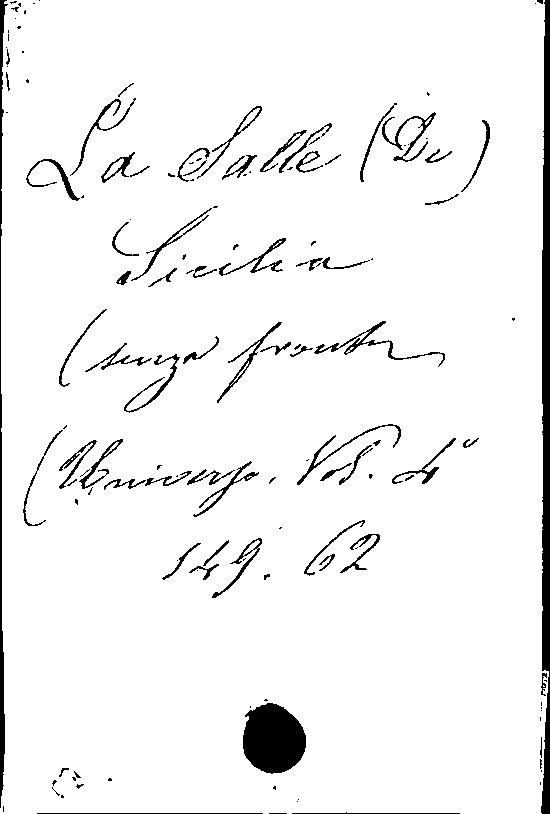 La Salle (De)
Sicilia
(senza front
(Universo. Vol. 4°
149. 62